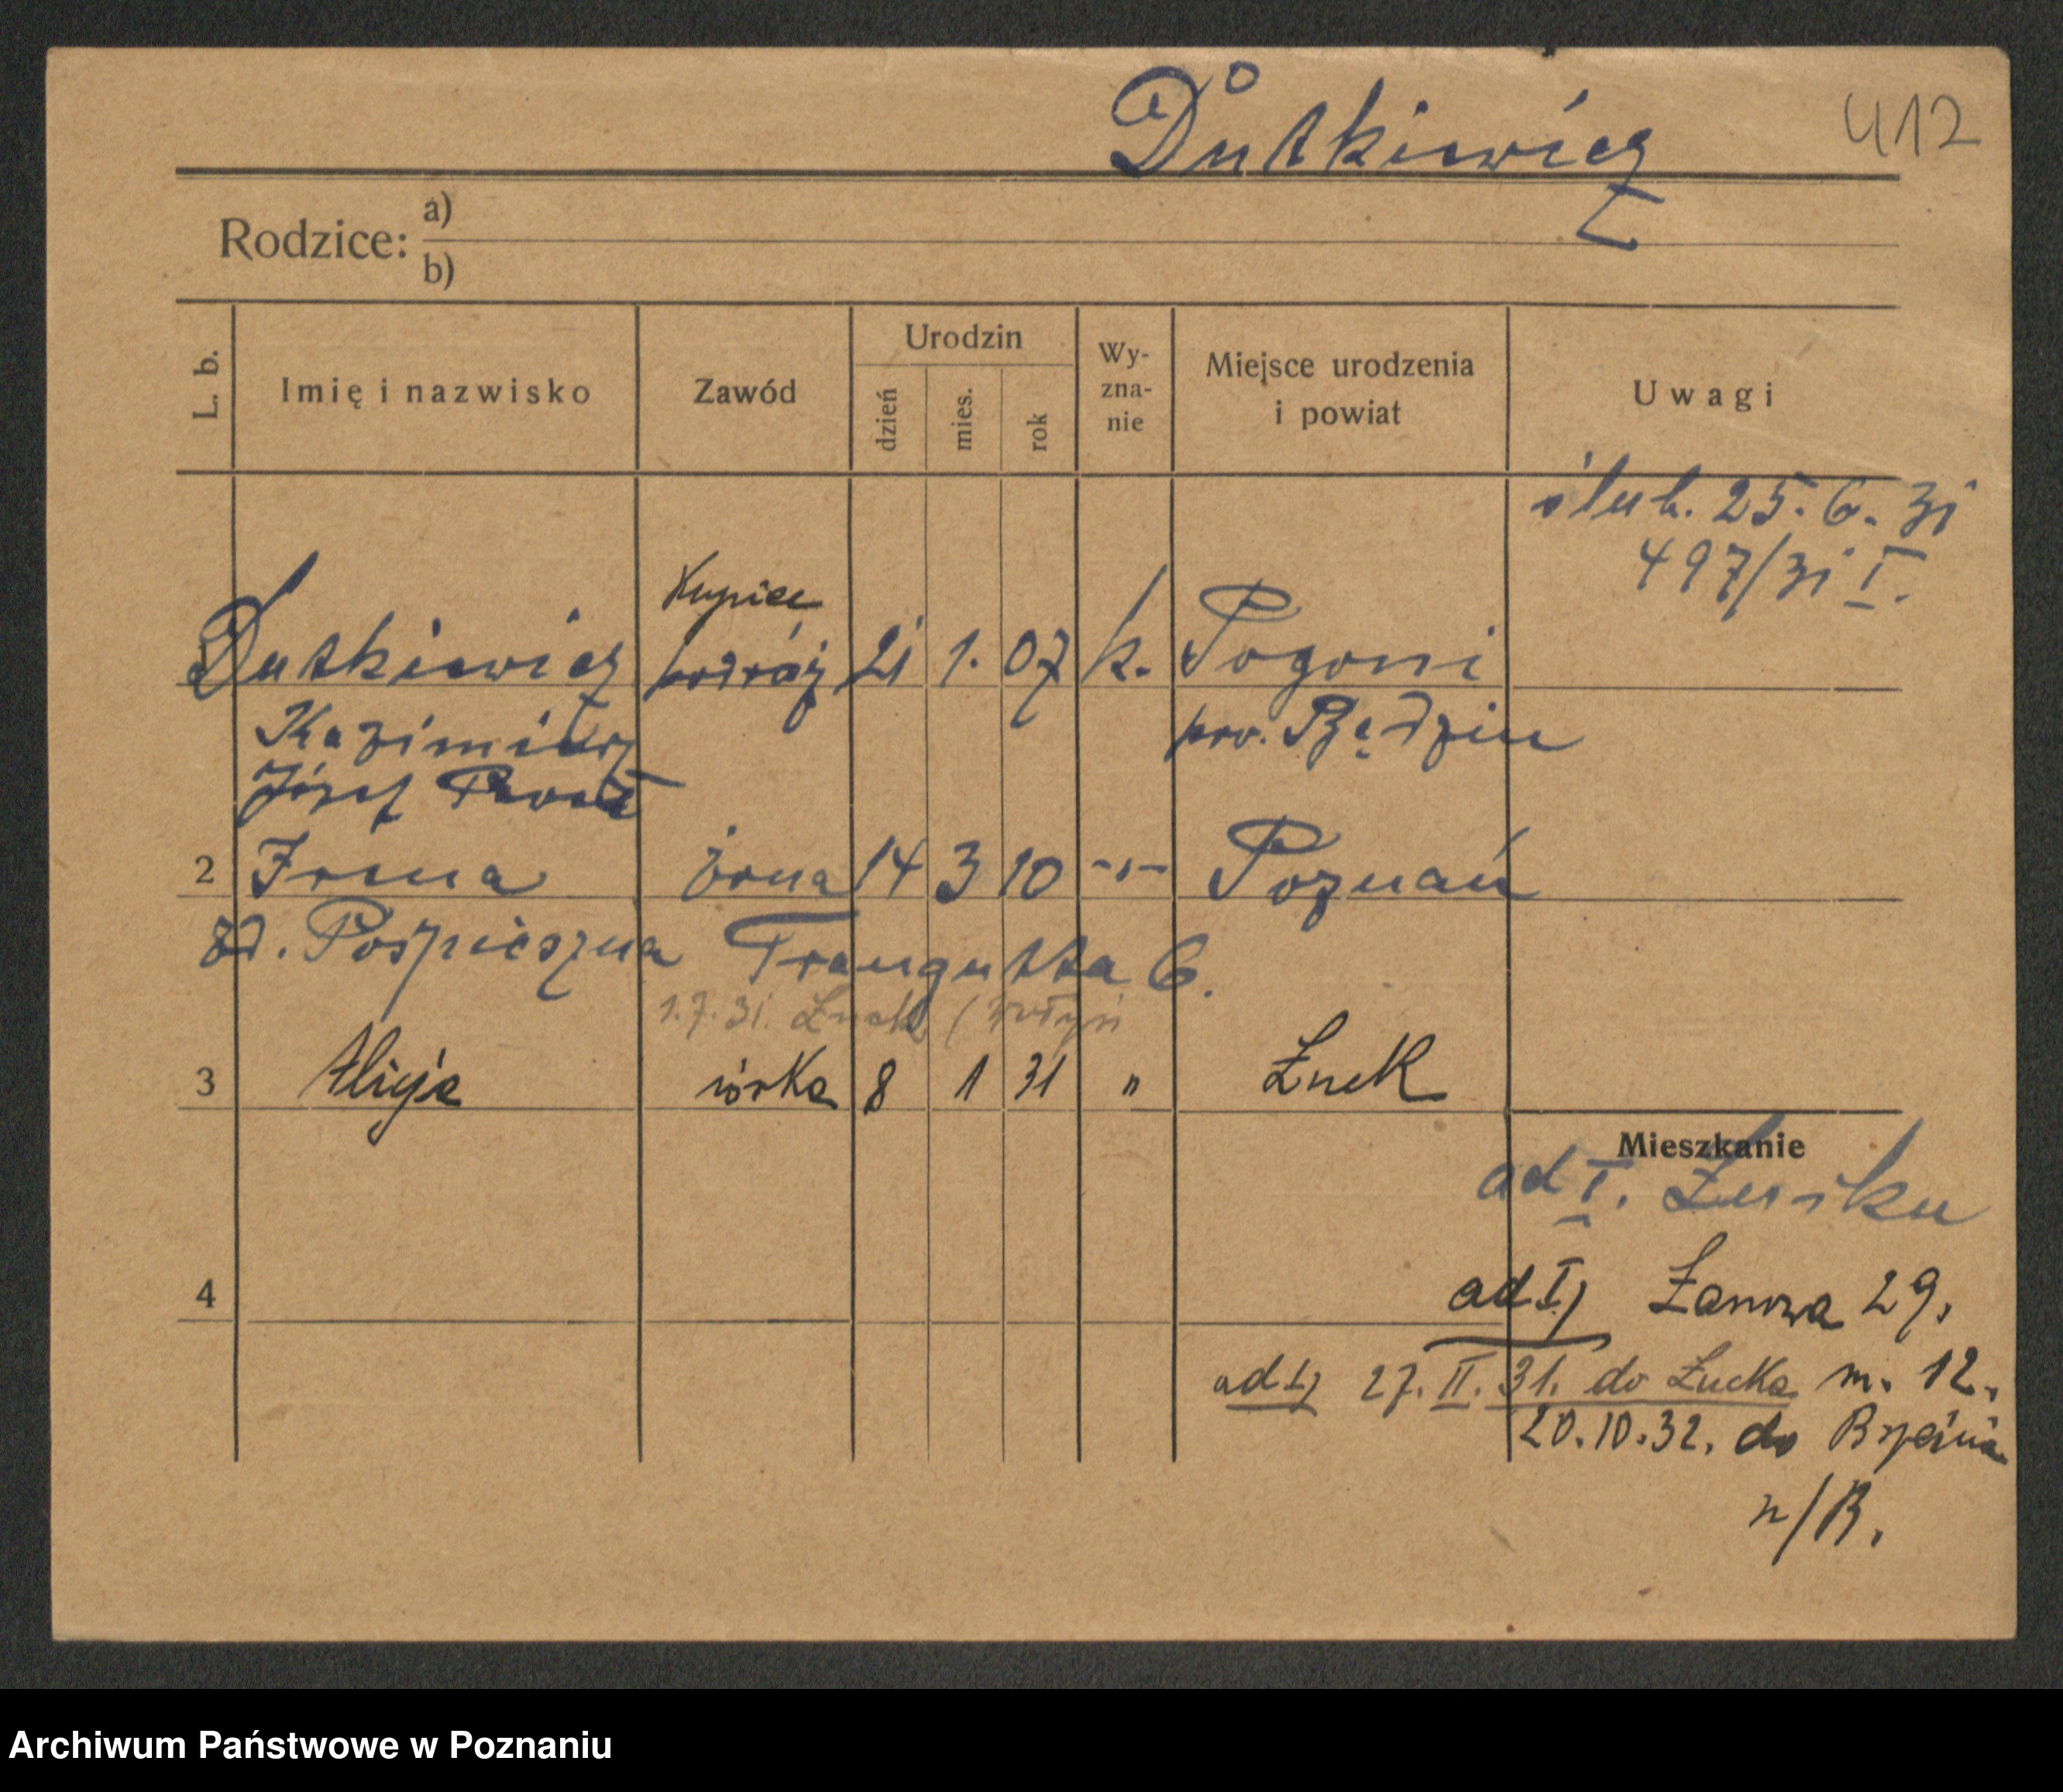 Dutkiewicz
412
Rodzice:
a)
b)
L. b.
Imię i nazwisko
Zawód
Urodzin
dzień
mies.
rok
Wy-
zna-
nie
Miejsce urodzenia
i powiat
Uwagi
ślub. 25. 6. 31
497/31 I.
Dutkiewicz Kupiec podróż 21 1. 07 k. Pogoni
Kazimierz pow. Będzin
Józef Paweł
2 Irena żona 14 3 10 -"- Poznań
zd. Pospieszna Traugutta 6.
1.7.31. Łuck (Wołyń
3 Alicja córka 8 1 31 " Łuck
Mieszkanie
ad I. Łucku
4
ad I) Łanowa 29.
ad I) 27. II. 31. do Łucka m. 12.
20.10.32. do Brześcia
n/B.
Archiwum Państwowe w Poznaniu